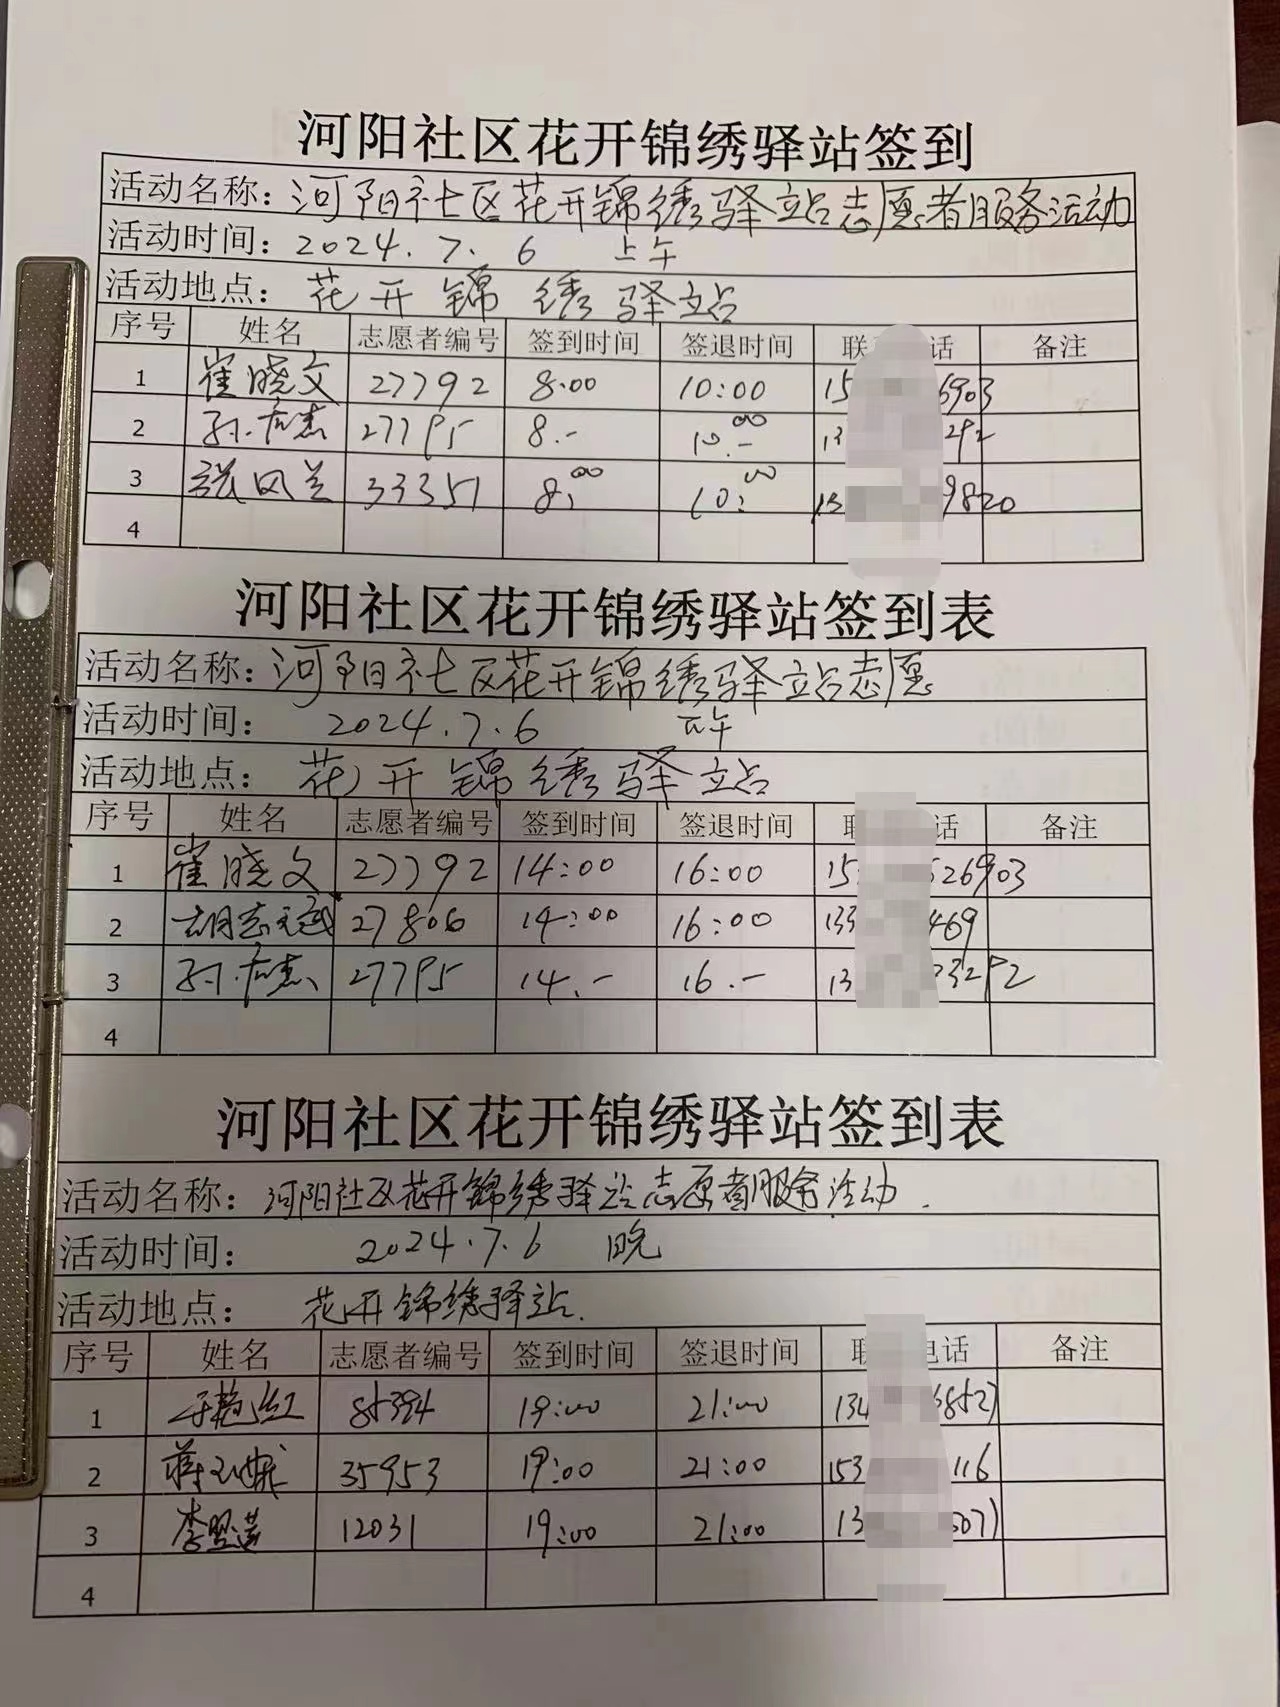 河阳社区花开锦绣驿站签到
活动名称：河阳社区花开锦绣驿站志愿者服务活动
活动时间：2024.7.6 上午
活动地点：花开锦绣驿站
序号 姓名 志愿者编号 签到时间 签退时间 联 话 备注
1 崔晓文 27792 8:00 10:00 15 6903
2 孙 杰 27795 8.- 10.00- 13 292
3 张风兰 33351 8:00 10:00 13 9820
4
河阳社区花开锦绣驿站签到表
活动名称：河阳社区花开锦绣驿站志愿
活动时间： 2024.7.6 下午
活动地点： 花开锦绣驿站
序号 姓名 志愿者编号 签到时间 签退时间 联 话 备注
1 崔晓文 27792 14:00 16:00 15 626903
2 胡志 27806 14:00 16:00 133 469
3 孙 杰 27795 14.- 16.- 13 3292
4
河阳社区花开锦绣驿站签到表
活动名称：河阳社区花开锦绣驿站志愿者服务活动.
活动时间： 2024.7.6 晚
活动地点： 花开锦绣驿站.
序号 姓名 志愿者编号 签到时间 签退时间 联 电话 备注
1 于艳红 85394 19:00 21:00 134 6852)
2 蒋 35953 19:00 21:00 153 116
3 李 莲 12031 19:00 21:00 13 507)
4